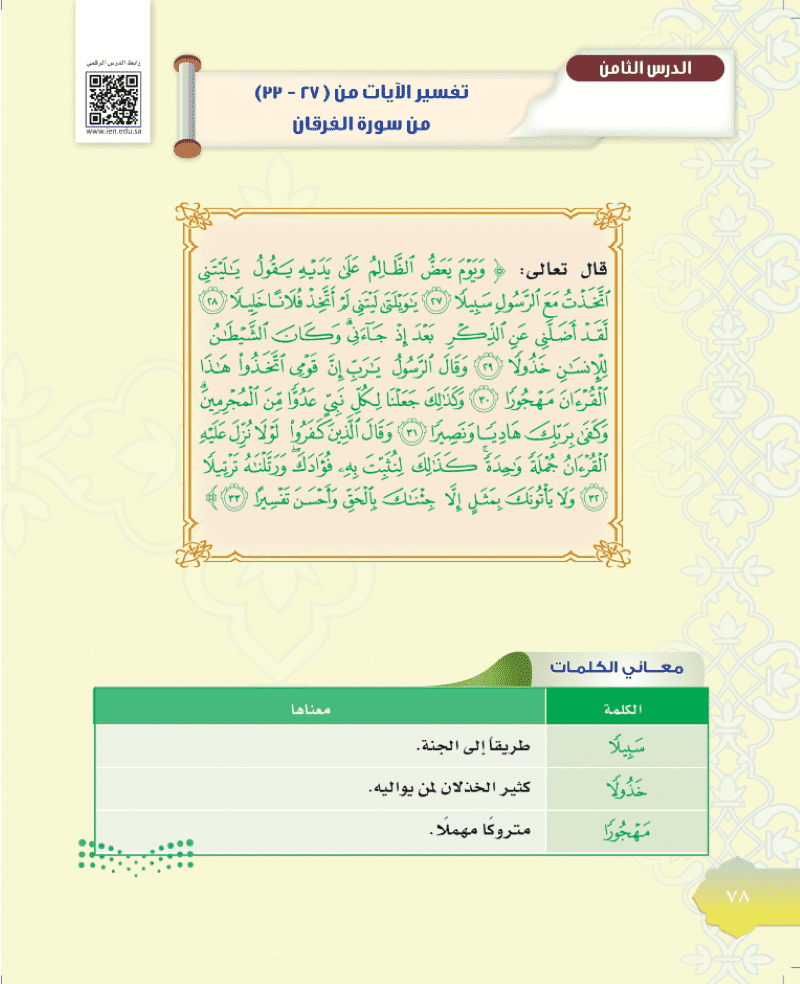 رابط الدرس الرقمي
www.ien.edu.sa
الدرس الثامن
تفسير الآيات من (٢٧ - ٣٣)
من سورة الفرقان
قال تعالى: ﴿ وَيَوْمَ يَعَضُّ ٱلظَّالِمُ عَلَىٰ يَدَيْهِ يَقُولُ يَٰلَيْتَنِي
ٱتَّخَذْتُ مَعَ ٱلرَّسُولِ سَبِيلًا ٢٧ يَٰوَيْلَتَىٰ لَيْتَنِي لَمْ أَتَّخِذْ فُلَانًا خَلِيلًا ٢٨
لَّقَدْ أَضَلَّنِي عَنِ ٱلذِّكْرِ بَعْدَ إِذْ جَآءَنِي ۗ وَكَانَ ٱلشَّيْطَٰنُ
لِلْإِنسَٰنِ خَذُولًا ٢٩ وَقَالَ ٱلرَّسُولُ يَٰرَبِّ إِنَّ قَوْمِي ٱتَّخَذُوا۟ هَٰذَا
ٱلْقُرْءَانَ مَهْجُورًا ٣٠ وَكَذَٰلِكَ جَعَلْنَا لِكُلِّ نَبِيٍّ عَدُوًّا مِّنَ ٱلْمُجْرِمِينَ ۗ
وَكَفَىٰ بِرَبِّكَ هَادِيًا وَنَصِيرًا ٣١ وَقَالَ ٱلَّذِينَ كَفَرُوا۟ لَوْلَا نُزِّلَ عَلَيْهِ
ٱلْقُرْءَانُ جُمْلَةً وَٰحِدَةً ۚ كَذَٰلِكَ لِنُثَبِّتَ بِهِۦ فُؤَادَكَ ۖ وَرَتَّلْنَٰهُ تَرْتِيلًا
٣٢ وَلَا يَأْتُونَكَ بِمَثَلٍ إِلَّا جِئْنَٰكَ بِٱلْحَقِّ وَأَحْسَنَ تَفْسِيرًا ٣٣ ﴾
معاني الكلمات
الكلمة معناها
سَبِيلًا طريقاً إلى الجنة.
خَذُولًا كثير الخذلان لمن يواليه.
مَهْجُورًا متروكًا مهملًا.
٧٨